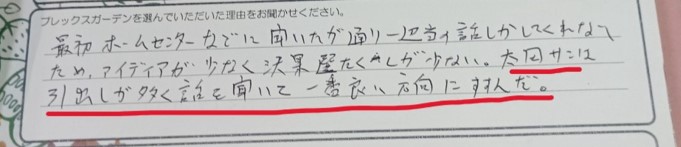 フレックスガーデンを選んでいただいた理由をお聞かせください。
最初ホームセンターなどに聞いたが通り一辺当の話しかしてくれない
ため、アイディアが少なく決果 が少ない。太田サンは
引出しが多く話を聞いて一番良い方向にすすんだ。